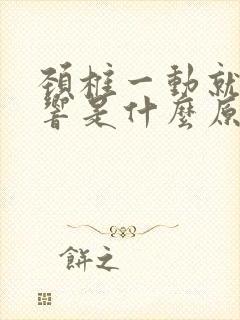 頸椎一動就
響是什麼原
餅之